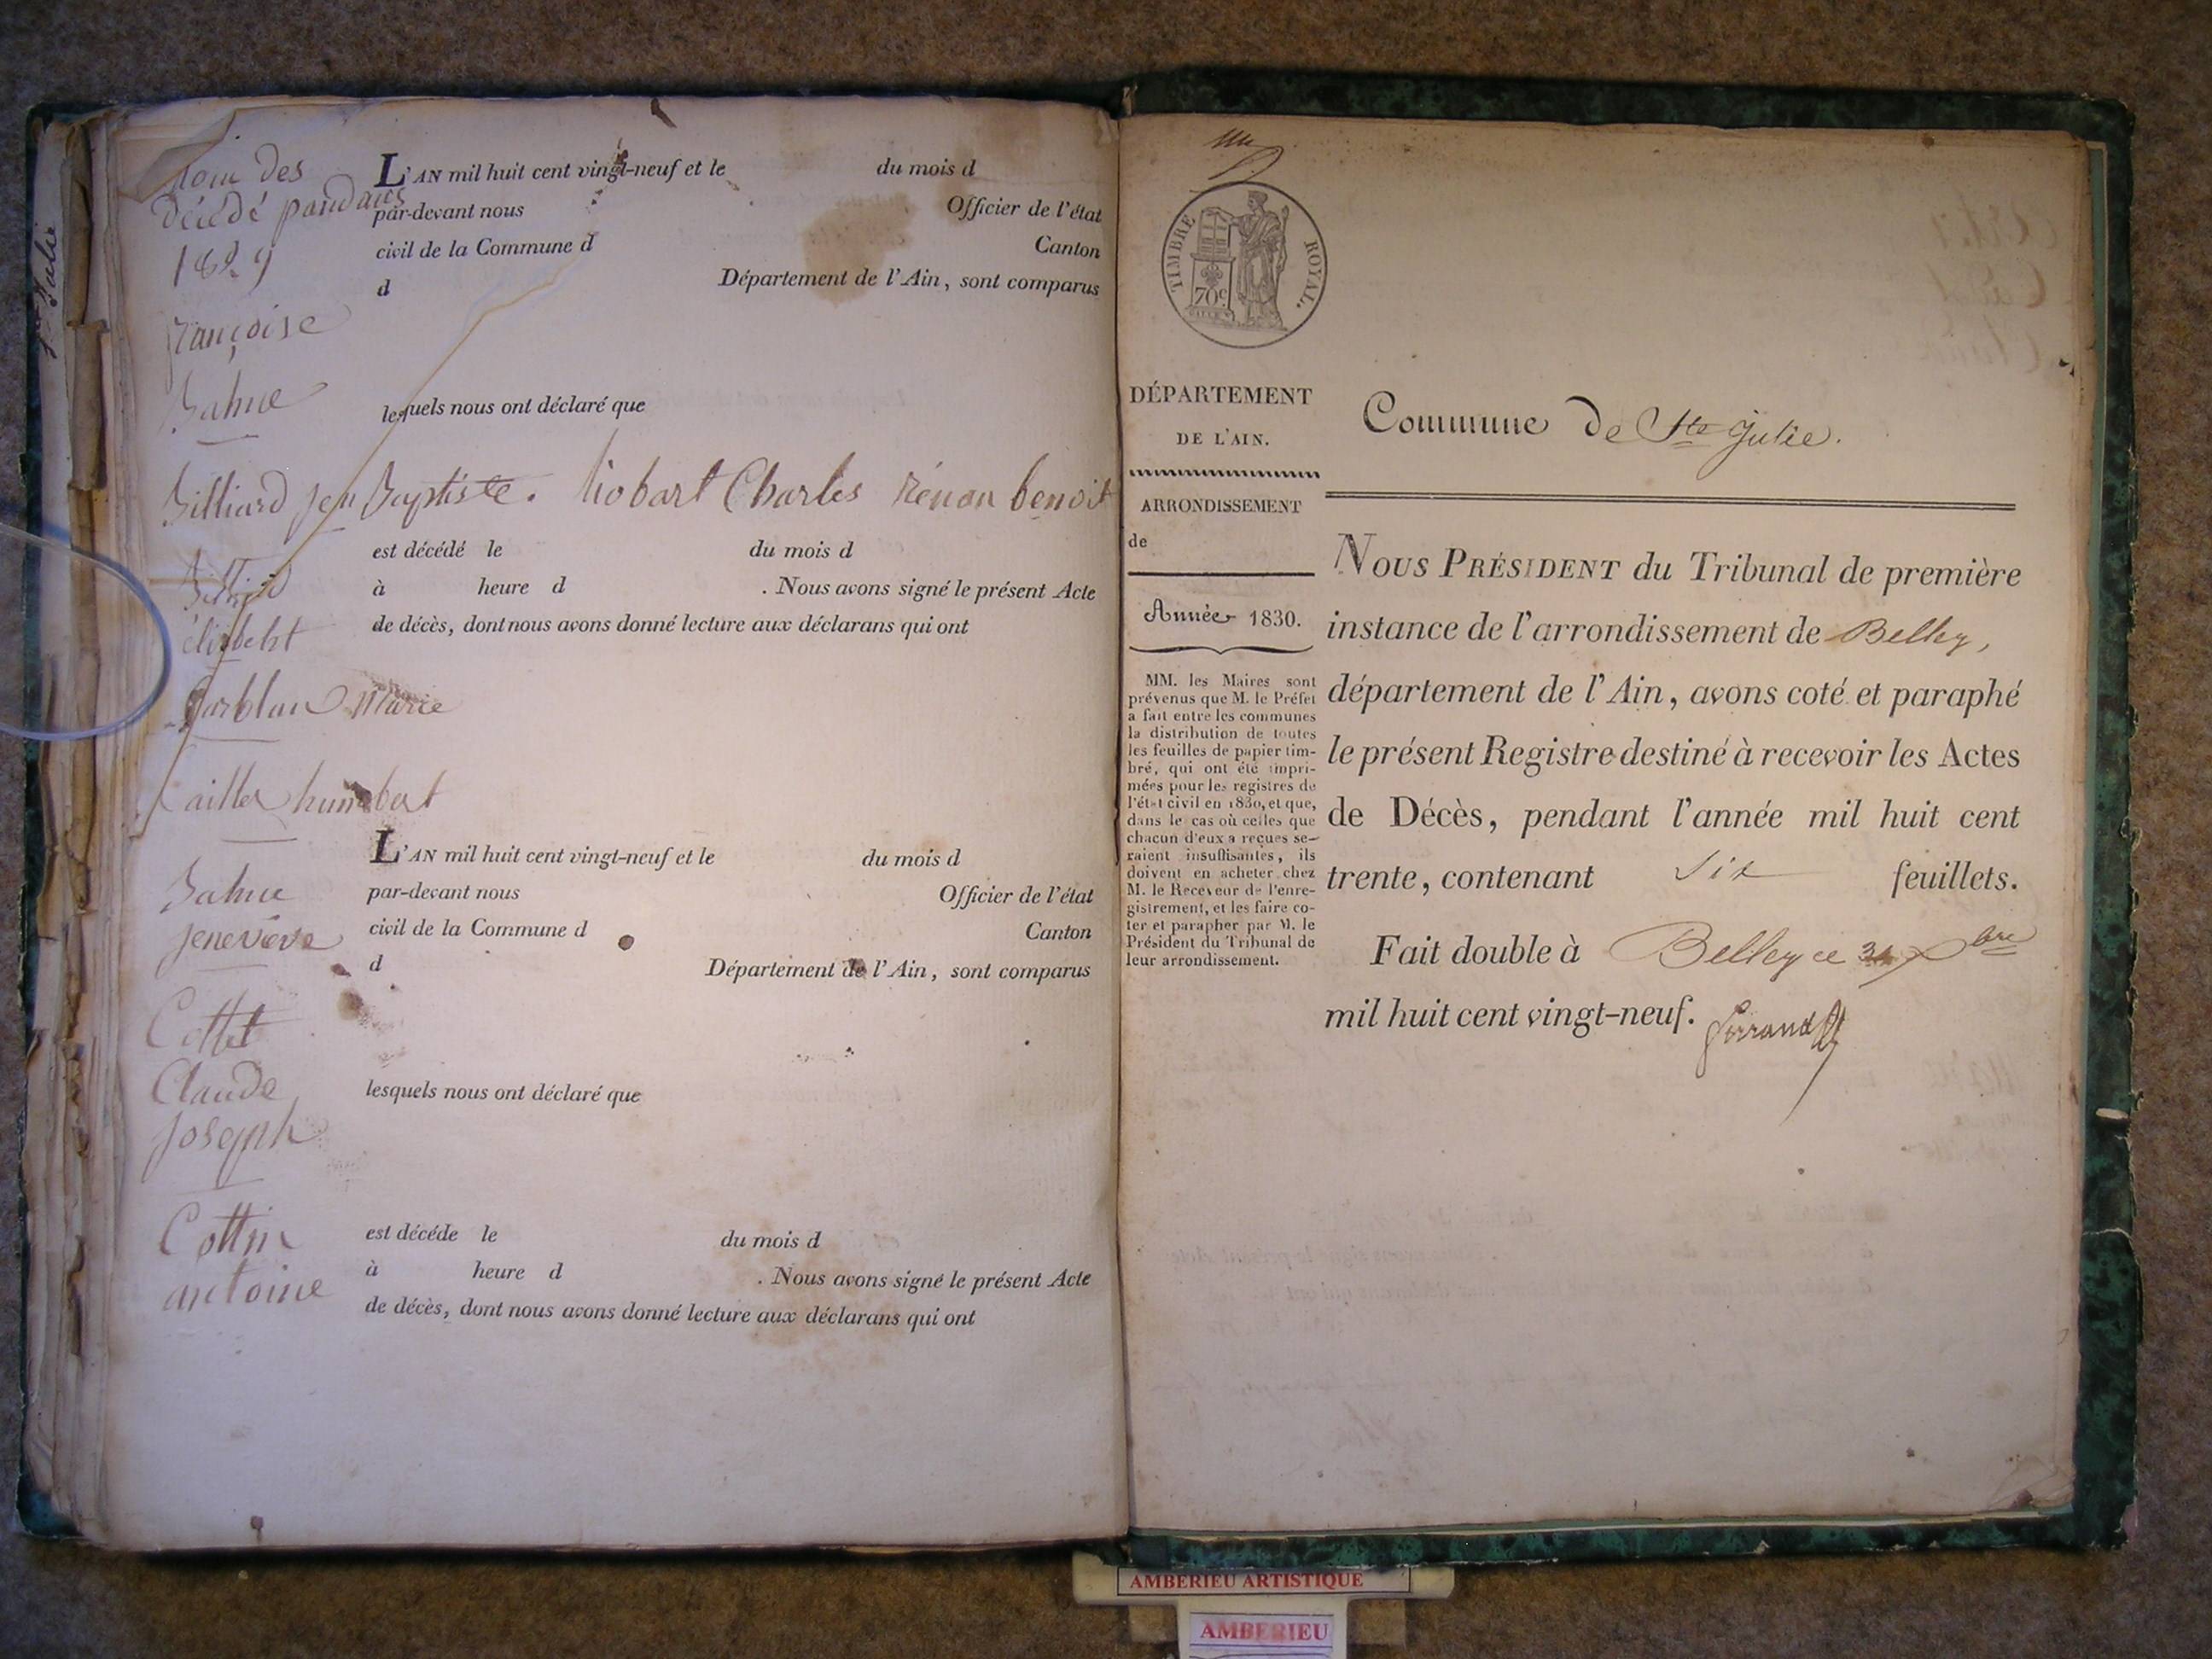 nom des
décédé pandant
1829
françoise
Bahue
Billiard jean Baptiste. liobart Charles rénon benoit
Marie
Cailler humbert
Bahue
jeneviève
Cottet
Claude
joseph
Cottin
antoine
L'AN mil huit cent vingt-neuf et le du mois d
par-devant nous Officier de l'état
civil de la Commune d Canton
d Département de l'Ain, sont comparus
lesquels nous ont déclaré que
est décédé le du mois d
à heure d . Nous avons signé le présent Acte
de décès, dont nous avons donné lecture aux déclarans qui ont
L'AN mil huit cent vingt-neuf et le du mois d
par-devant nous Officier de l'état
civil de la Commune d Canton
d Département de l'Ain, sont comparus
lesquels nous ont déclaré que
est décéde le du mois d
à heure d . Nous avons signé le présent Acte
de décès, dont nous avons donné lecture aux déclarans qui ont
TIMBRE ROYAL.
70c
DÉPARTEMENT
DE L'AIN.
ARRONDISSEMENT
de
Année 1830.
MM. les Maires sont
prévenus que M. le Préfet
a fait entre les communes
la distribution de toutes
les feuilles de papier tim-
bré, qui ont été impri-
mées pour les registres de
l'état civil en 1830, et que,
dans le cas où celles que
chacun d'eux a reçues se-
raient insuffisantes, ils
doivent en acheter chez
M. le Receveur de l'enre-
gistrement, et les faire co-
ter et parapher par M. le
Président du Tribunal de
leur arrondissement.
Commune de Ste Julie.
NOUS PRÉSIDENT du Tribunal de première
instance de l'arrondissement de Belley,
département de l'Ain, avons coté et paraphé
le présent Registre destiné à recevoir les Actes
de Décès, pendant l'année mil huit cent
trente, contenant Six feuillets.
Fait double à Belley ce Xbre
mil huit cent vingt-neuf.
AMBERIEU ARTISTIQUE
AMBERIEU